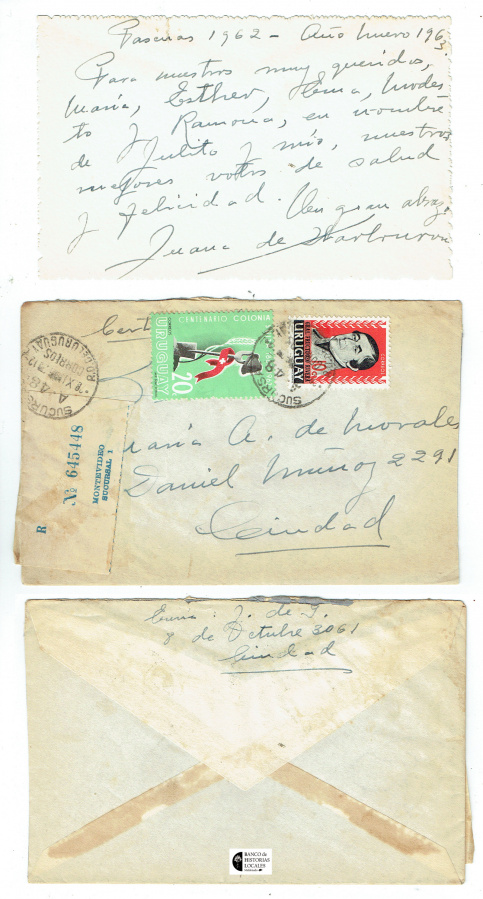 Pascuas 1962 - Año nuevo 1963.
Para nuestros muy queridos,
María, Esther, Ema, Modes
to y Ramona, en nombre
de Julito y mío, nuestros
mejores votos de salud
y felicidad. Un gran abrazo.
Juana de Ibarbourou
Cert
CORREOS
CENTENARIO COLONIA
URUGUAY
20
URUGUAY
SUCURSAL
A 48
CORREOS
R.O. DEL URUGUAY
SUCURS
A 48
R
Nº 645448
MONTEVIDEO
SUCURSAL 1
María A. de Morales
Daniel Muñoz 2291
Ciudad
Envía: J. de I.
8 de Octubre 3061
Ciudad
BANCO de
HISTORIAS
LOCALES